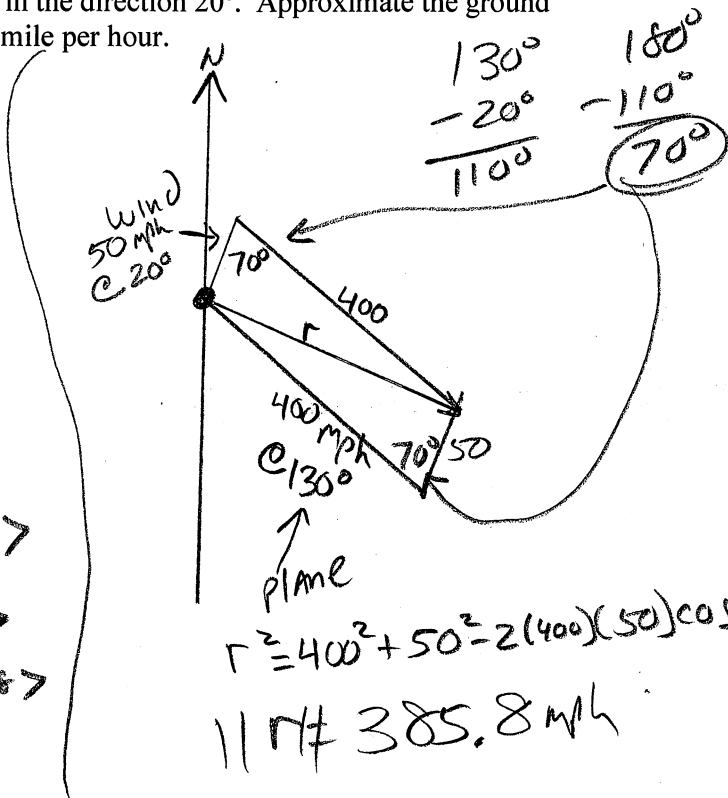 in the direction 20°. Approximate the ground
mile per hour.
N
130°
- 20°
110°
180°
- 110°
70°
wind
50 mph
@ 20°
70°
400
r
400 mph
@ 130°
70°
50
plane
r² = 400² + 50² - 2(400)(50)cos
||r|| = 385.8 mph
>
>